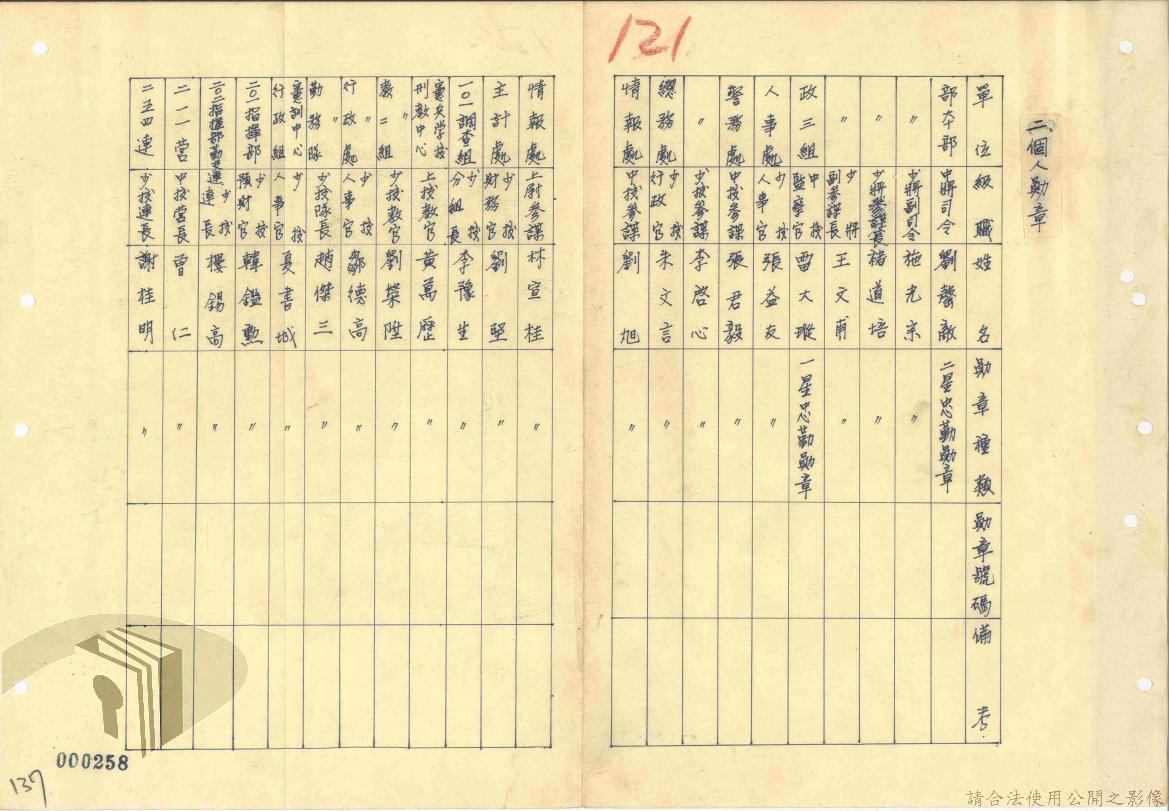 121
二、個人勛章
單位 級職 姓名 勛章種類 勛章號碼 備考
部本部 中將司令 劉罄敵 二星忠勤勛章
〃 少將副司令 施光宗 〃
〃 少將參謀長 褚道培 〃
〃 少將副參謀長 王文甫 〃
政三組 中校監察官 雷大瑽 一星忠勤勛章
人事處 少校人事官 張益友 〃
警務處 中校參謀 張君毅 〃
〃 少校參謀 李啓心 〃
總務處 少校行政官 朱文言 〃
情報處 中校參謀 劉旭 〃
情報處 上尉參謀 林宣桂 〃
主計處 少校財務官 劉堅 〃
一〇一調查組 少校分組長 李豫生 〃
憲兵学校刑教中心 上校教官 黃萬歷 〃
〃教二組 少校教官 劉榮陞 〃
〃行政處 少校人事官 鄒德高 〃
〃勤務隊 少校隊長 趙傑三 〃
憲訓中心行政組 少校人事官 夏書城 〃
二〇一指揮部 少校預財官 韓鑑勲 〃
二〇二指揮部勤支連 少校連長 樓錫高 〃
二一一營 中校營長 曾仁 〃
二五四連 少校連長 謝桂明 〃
000258
137
請合法使用公開之影像